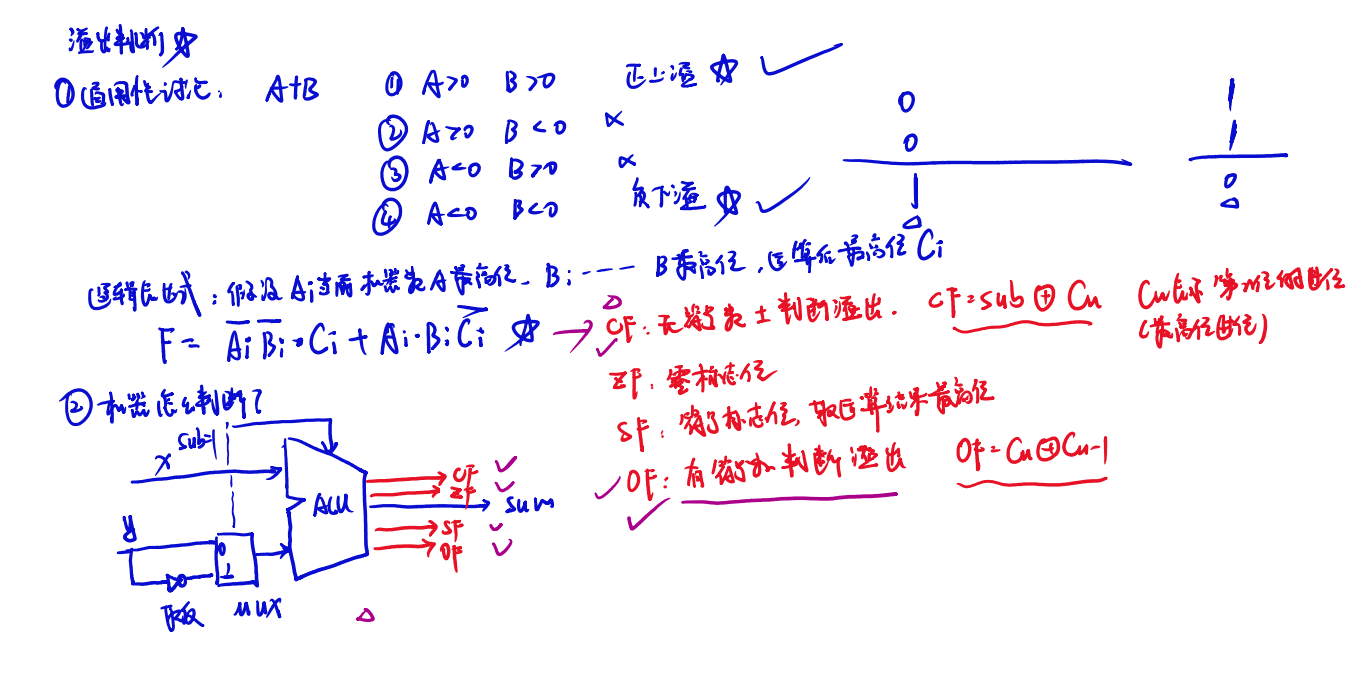 溢出判断☆
①通用性讨论: A+B
① A>0 B>0 正上溢 ☆ ✓
② A>0 B<0 ×
③ A<0 B>0 ×
④ A<0 B<0 负下溢 ☆ ✓
0
0
1
1
1
0
逻辑表达式: 假设Ai当前机器数A最高位. Bi ---- B最高位, 运算后最高位 Ci
F = A̅i B̅i·Ci + Ai·Bi C̅i ☆ →
CF: 无符号数±判断溢出. CF=sub⊕Cn Cn表示第n位的进位
(最高位进位)
ZF: 零标志位
SF: 符号标志位, 取运算结果最高位
OF: 有符号加判断溢出 OF=Cn⊕Cn-1
② 机器怎么判断?
sub=1
x
y
ALU
CF ✓
ZF ✓
sum
SF ✓
OF ✓
0
1
取反 MUX